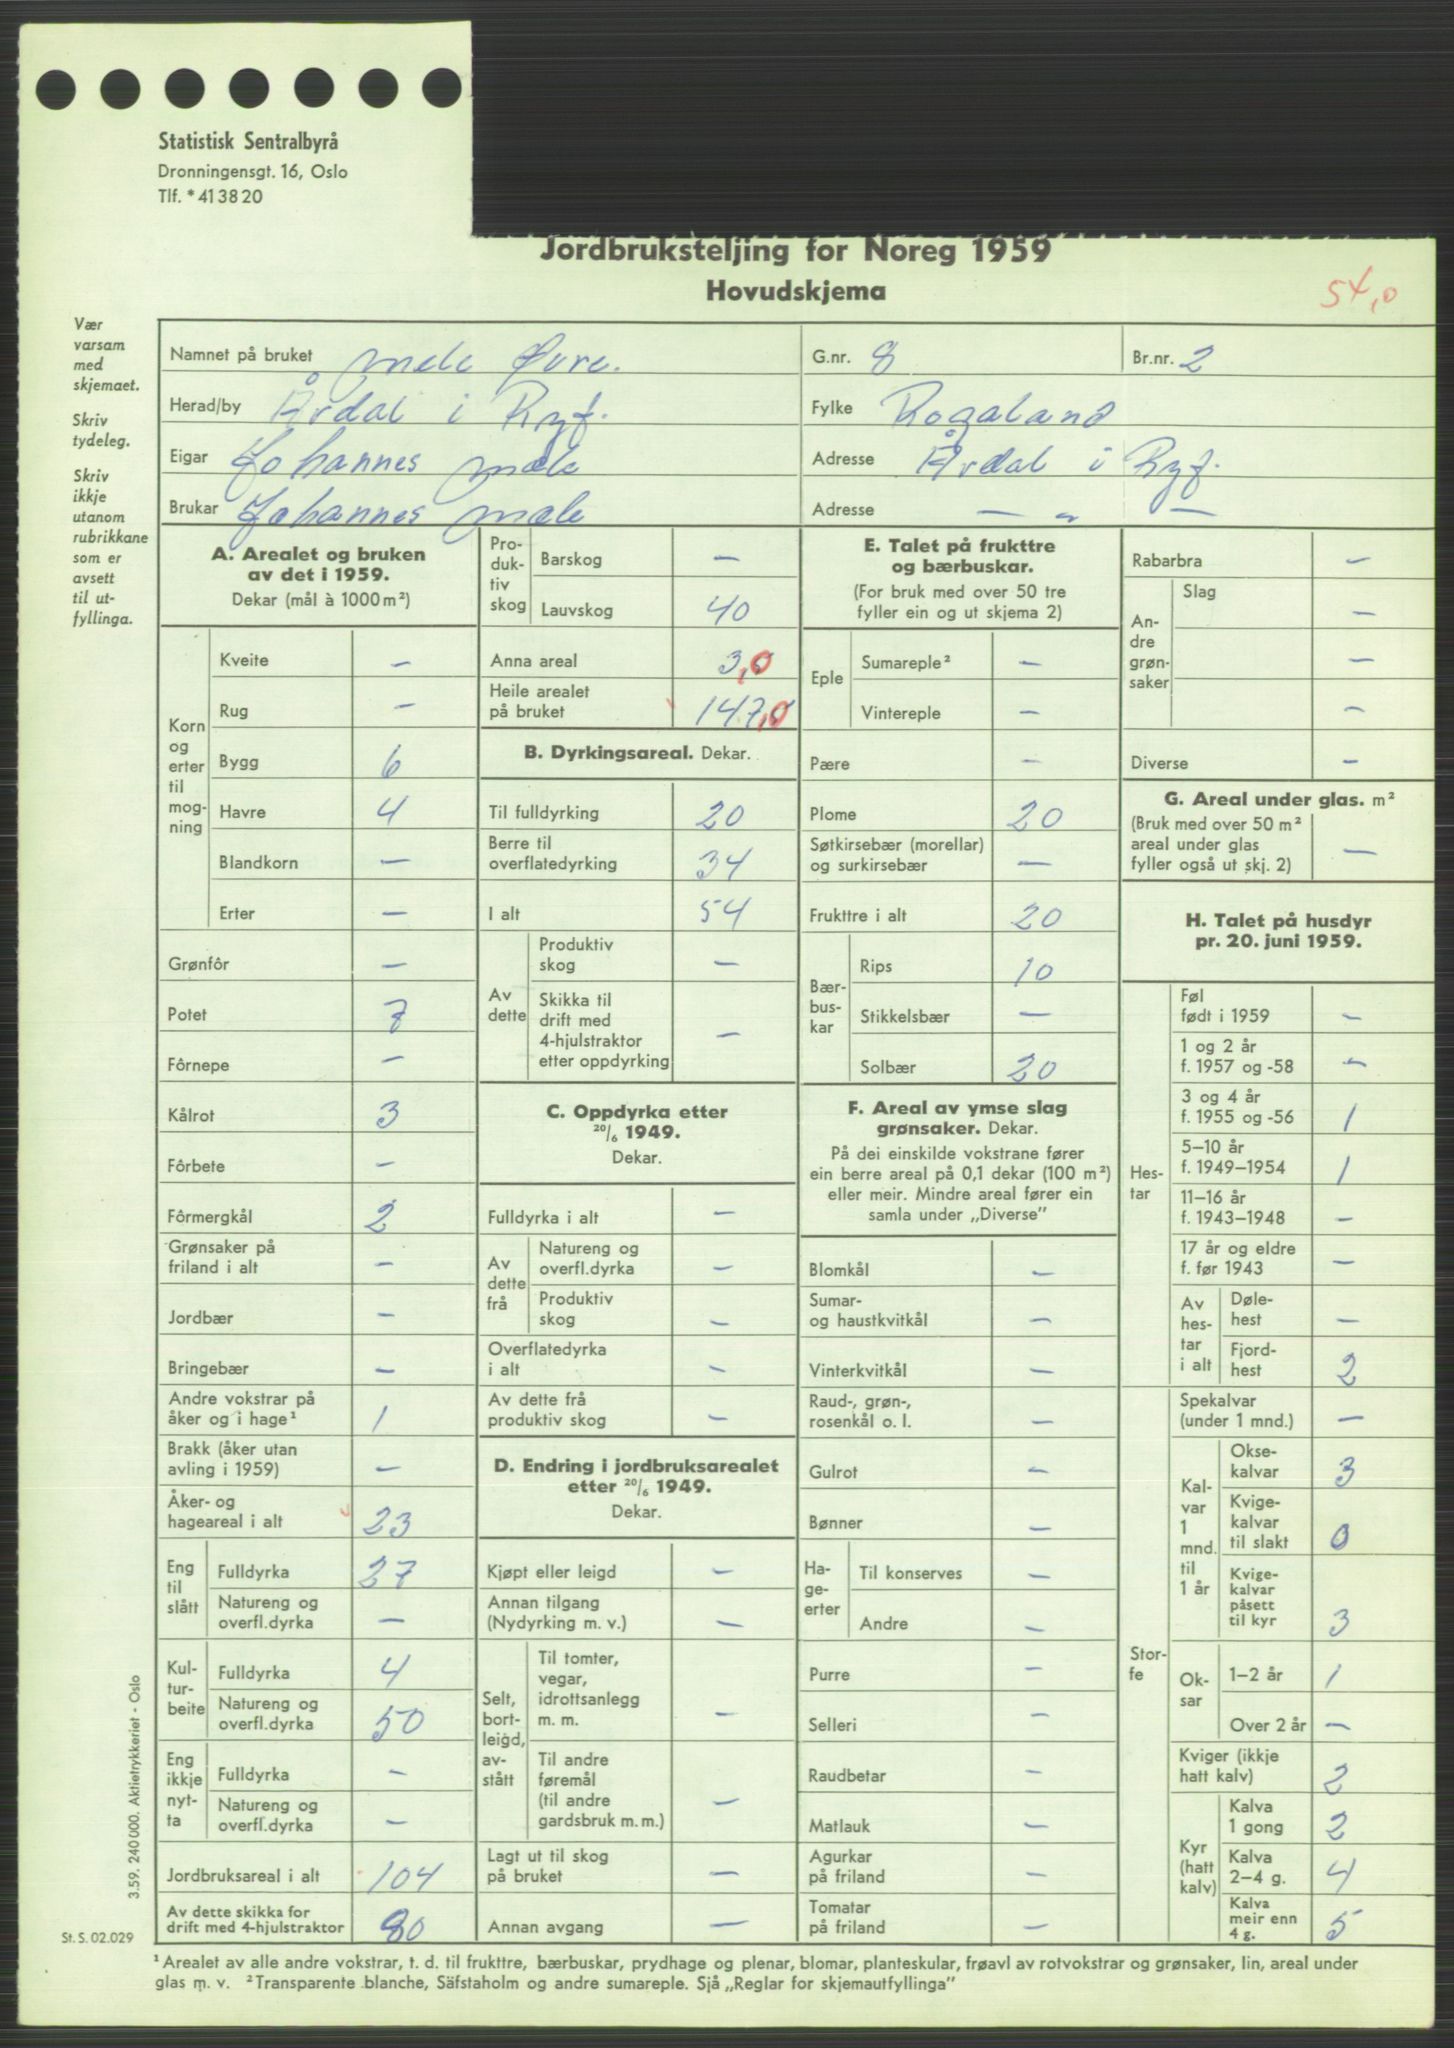 Statistisk Sentralbyrå
Dronningensgt. 16, Oslo
Tlf. * 41 38 20
Jordbruksteljing for Noreg 1959
Hovudskjema
54,0
Vær
varsam
med
skjemaet.
Skriv
tydeleg.
Skriv
ikkje
utanom
rubrikkane
som er
avsett
til ut-
fyllinga.
Namnet på bruket Mele Øvre. G.nr. 8 Br.nr. 2
Herad/by Årdal i Ryf. Fylke Rogaland
Eigar Johannes Mæle Adresse Årdal i Ryf.
Brukar Johannes Mæle Adresse — „ —
A. Arealet og bruken
av det i 1959.
Dekar (mål à 1000 m²)
Korn og erter til mog-ning
Kveite —
Rug —
Bygg 6
Havre 4
Blandkorn —
Erter —
Grønfôr —
Potet 7
Fôrnepe —
Kålrot 3
Fôrbete —
Fôrmergkål 2
Grønsaker på
friland i alt —
Jordbær —
Bringebær —
Andre vokstrar på
åker og i hage¹ 1
Brakk (åker utan
avling i 1959) —
Åker- og
hageareal i alt 23
Eng til slått
Fulldyrka 27
Natureng og
overfl.dyrka —
Kul-tur-beite
Fulldyrka 4
Natureng og
overfl.dyrka 50
Eng ikkje nyt-ta
Fulldyrka —
Natureng og
overfl.dyrka —
Jordbruksareal i alt 104
Av dette skikka for
drift med 4-hjulstraktor 80
Pro-duk-tiv skog
Barskog —
Lauvskog 40
Anna areal 3,0
Heile arealet
på bruket 147,0
B. Dyrkingsareal. Dekar.
Til fulldyrking 20
Berre til
overflatedyrking 34
I alt 54
Av dette
Produktiv
skog —
Skikka til
drift med
4-hjulstraktor
etter oppdyrking —
C. Oppdyrka etter
20/6 1949.
Dekar.
Fulldyrka i alt —
Av dette frå
Natureng og
overfl.dyrka —
Produktiv
skog —
Overflatedyrka
i alt —
Av dette frå
produktiv skog —
D. Endring i jordbruksarealet
etter 20/6 1949.
Dekar.
Kjøpt eller leigd —
Annan tilgang
(Nydyrking m. v.) —
Selt, bort-leigd, av-stått
Til tomter,
vegar,
idrottsanlegg
m. m. —
Til andre
føremål
(til andre
gardsbruk m. m.) —
Lagt ut til skog
på bruket —
Annan avgang —
E. Talet på frukttre
og bærbuskar.
(For bruk med over 50 tre
fyller ein og ut skjema 2)
Eple
Sumareple² —
Vintereple —
Pære —
Plome 20
Søtkirsebær (morellar)
og surkirsebær —
Frukttre i alt 20
Bær-bus-kar
Rips 10
Stikkelsbær —
Solbær 20
F. Areal av ymse slag
grønsaker. Dekar.
På dei einskilde vokstrane fører
ein berre areal på 0,1 dekar (100 m²)
eller meir. Mindre areal fører ein
samla under „Diverse”
Blomkål —
Sumar-
og haustkvitkål —
Vinterkvitkål —
Raud-, grøn-,
rosenkål o. l. —
Gulrot —
Bønner —
Ha-ge-erter
Til konserves —
Andre —
Purre —
Selleri —
Raudbetar —
Matlauk —
Agurkar
på friland —
Tomatar
på friland —
Rabarbra —
An-dre grøn-saker
Slag —
—
—
Diverse —
G. Areal under glas. m²
(Bruk med over 50 m²
areal under glas
fyller også ut skj. 2) —
H. Talet på husdyr
pr. 20. juni 1959.
Hes-tar
Føl
født i 1959 —
1 og 2 år
f. 1957 og -58 —
3 og 4 år
f. 1955 og -56 1
5–10 år
f. 1949–1954 1
11–16 år
f. 1943–1948 —
17 år og eldre
f. før 1943 —
Av hes-tar i alt
Døle-
hest —
Fjord-
hest 2
Stor-fe
Spekalvar
(under 1 mnd.) —
Kal-var 1 mnd. til 1 år
Okse-
kalvar 3
Kvige-
kalvar
til slakt 0
Kvige-
kalvar
påsett
til kyr 3
Ok-sar
1–2 år 1
Over 2 år —
Kviger (ikkje
hatt kalv) 2
Kyr (hatt kalv)
Kalva
1 gong 2
Kalva
2–4 g. 4
Kalva
meir enn
4 g. 5
3.59. 240 000. Aktietrykkeriet - Oslo
St. S. 02.029
¹ Arealet av alle andre vokstrar, t. d. til frukttre, bærbuskar, prydhage og plenar, blomar, planteskular, frøavl av rotvokstrar og grønsaker, lin, areal under
glas m. v. ² Transparente blanche, Säfstaholm og andre sumareple. Sjå „Reglar for skjemautfyllinga”